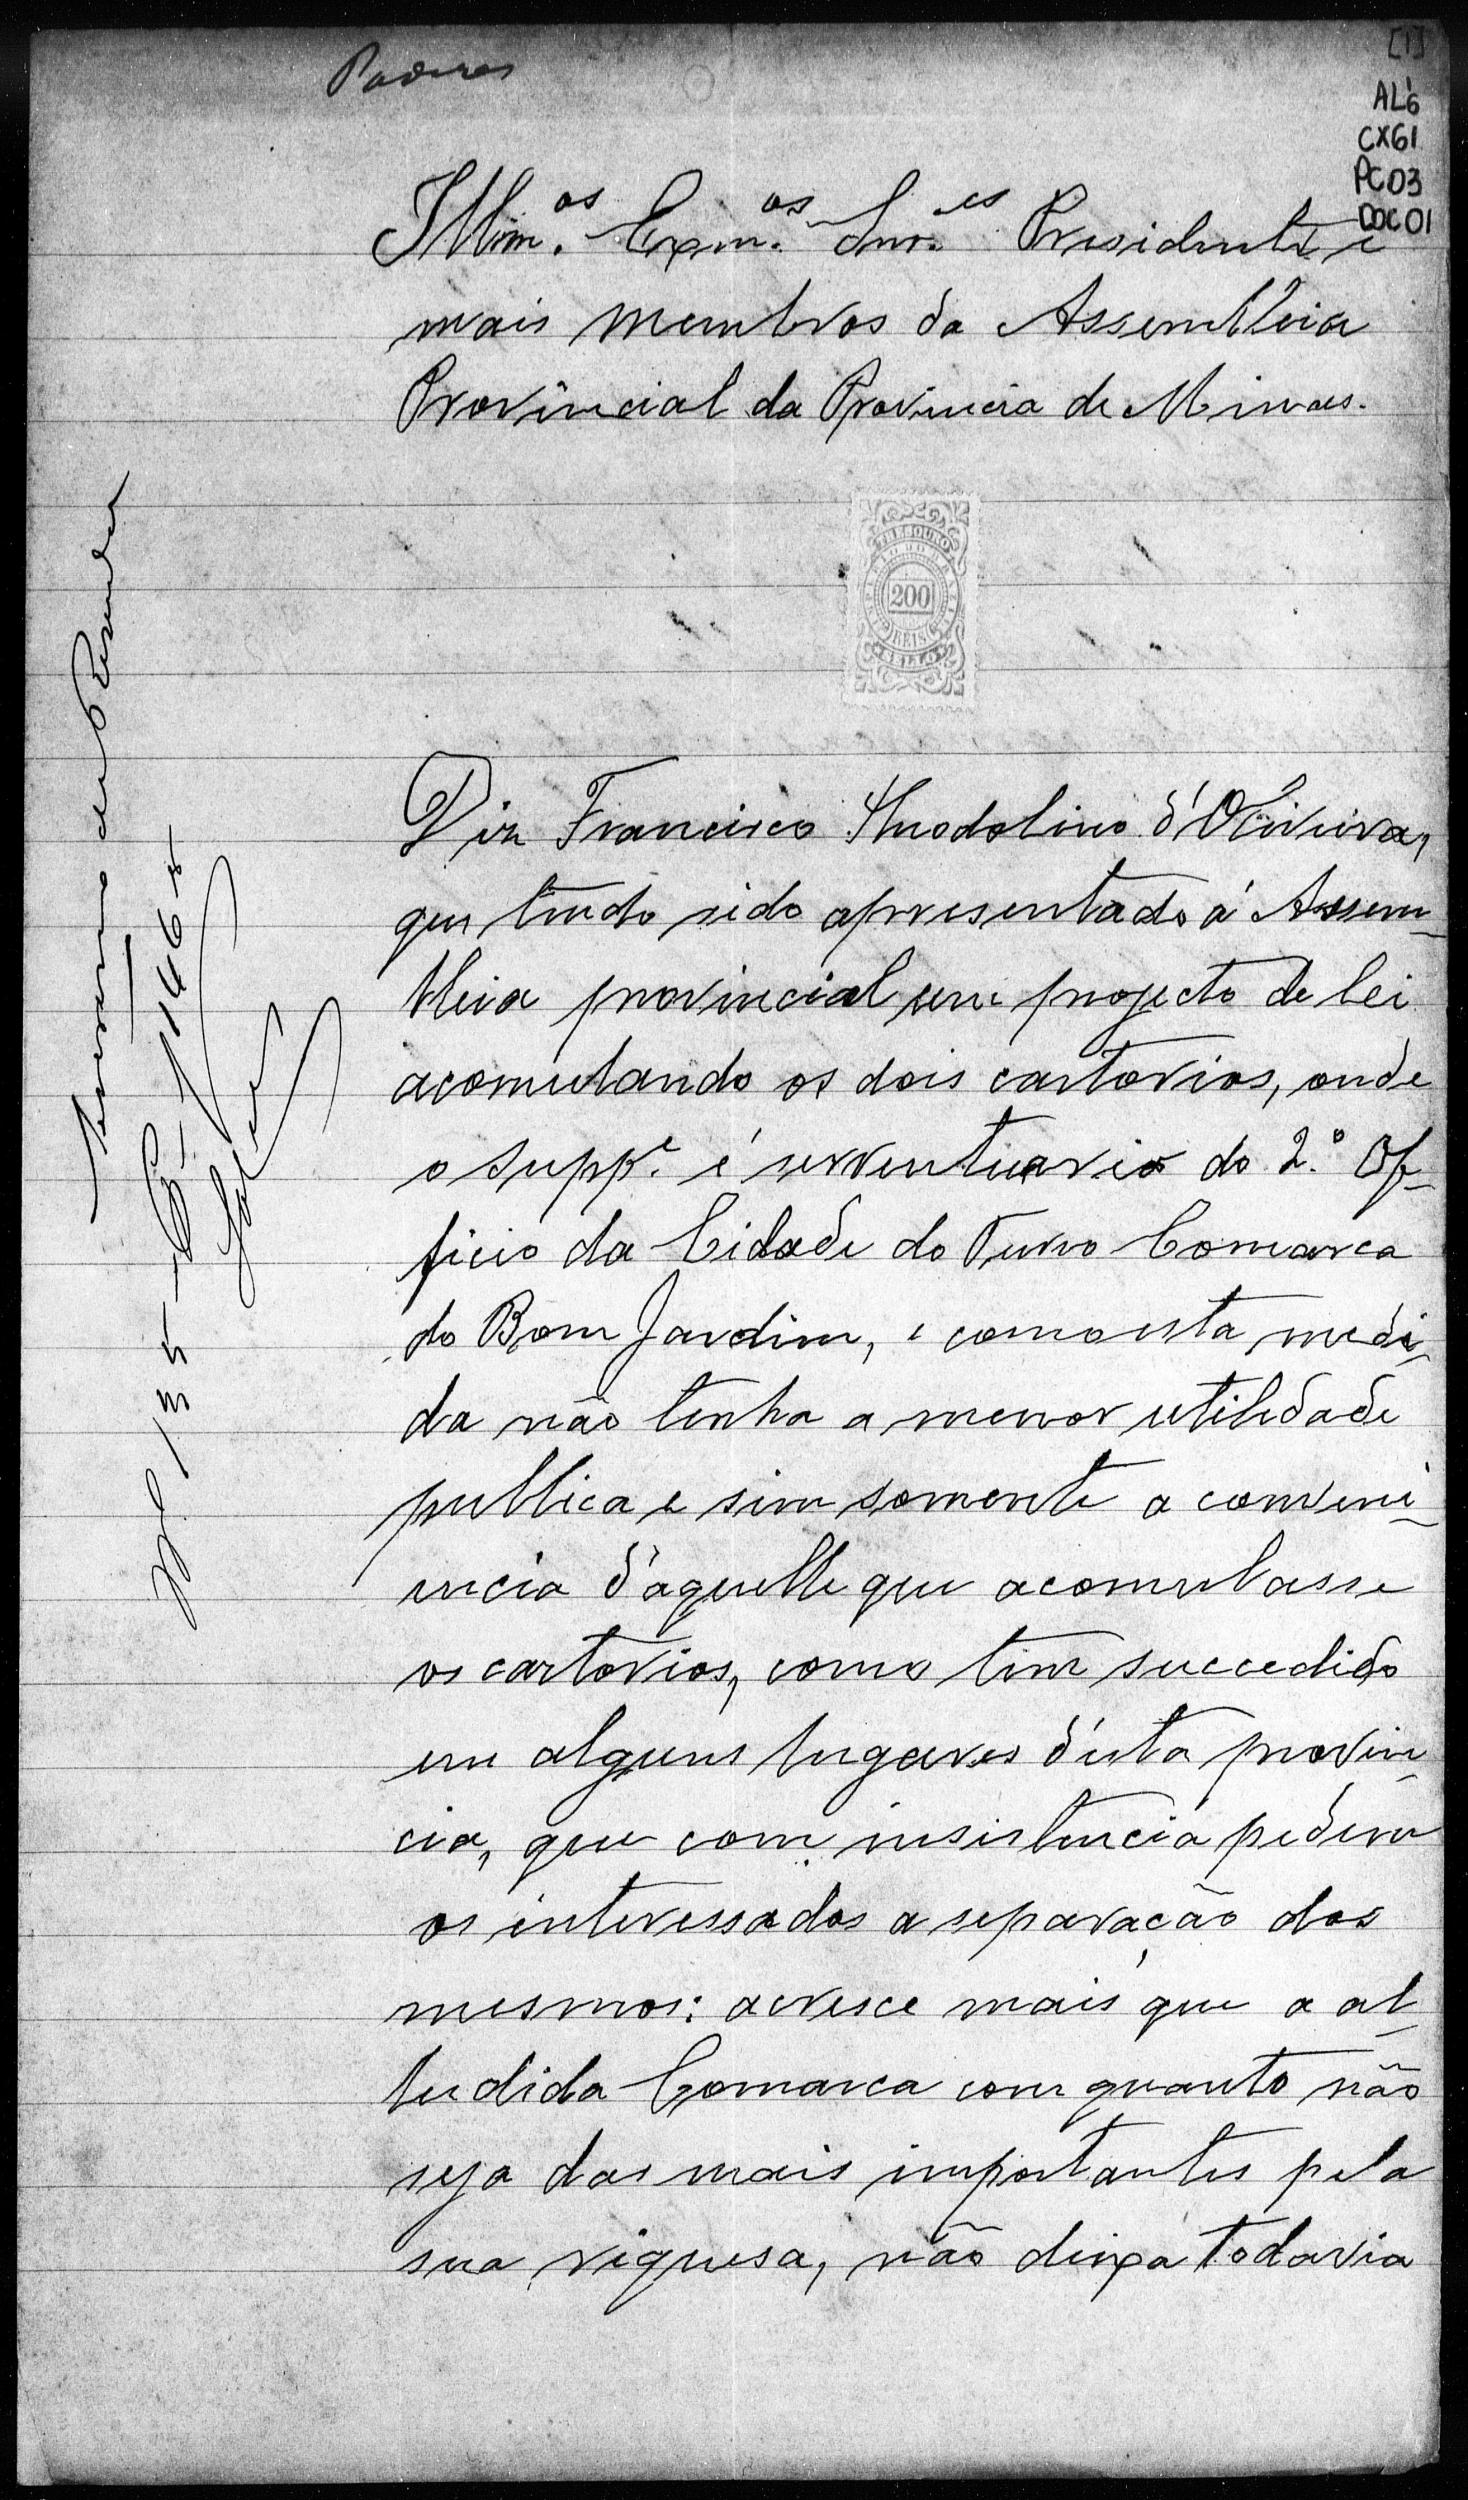 [1]
AL6
CX61
PC03
DOC01
Poderes
Illm.os Exm.os Snr.es Presidente e
mais membros da Assemblleia
Provincial da Provincia de Minas.
THESOURO
200
RÉIS
Diz Francisco Theodolino d'Oliveira,
que tendo sido apresentado á Assem-
bleia provincial um projecto de lei
acomulando os dois cartorios, onde
o Supp.e é serventuario do 2.º Of-
ficio da Cidade do Turvo Comarca
do Bom Jardim, e como esta medi-
da não tenha a menor utilidade
publica e sim somente a conveni-
encia d'aquelle que acomulasse
os cartorios, como tem succedido
em alguns lugares d'esta provin-
cia, que com insistencia pedem
os interessados a separação dos
mesmos: acresce mais que a al-
ludida Comarca com quanto não
seja das mais importantes pela
sua riquesa, não deixa todavia